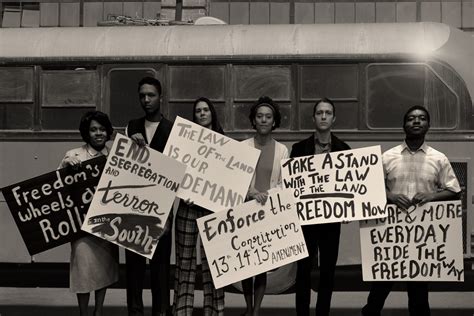 Freedom's
Wheels are
Rolling
END
SEGREGATION
AND
Terror
IN THE
South
THE
LAW of the
OF THE LAND
IS OUR
DEMAND
Enforce the
Constitution
13th, 14th, 15th
AMENDMENT
TAKE A STAND
WITH THE LAW
OF THE LAND
FREEDOM NOW
MORE & MORE
EVERYDAY
RIDE THE
FREEDOM WAY